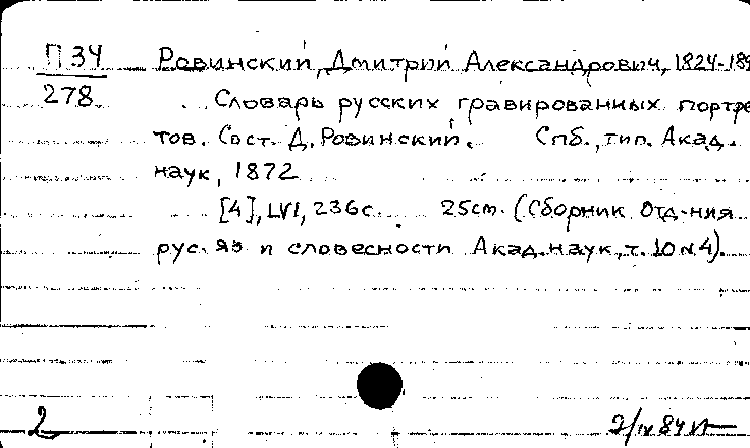 П 34
278
Ровинский, Дмитрий Александрович, 1824-189
Словарь русских гравированных портре
тов. Сост. Д. Ровинский. Спб., тип. Акад.
наук, 1872
[4], LVI, 236с. 25cm. (Сборник Отд-ния
рус. яз и словесности Акад. наук, т. 10 №4).
2